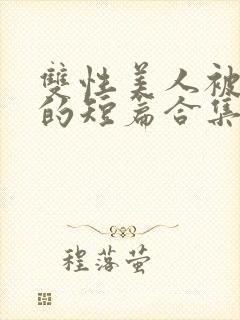 雙性美人被
的短篇合集
程落萤